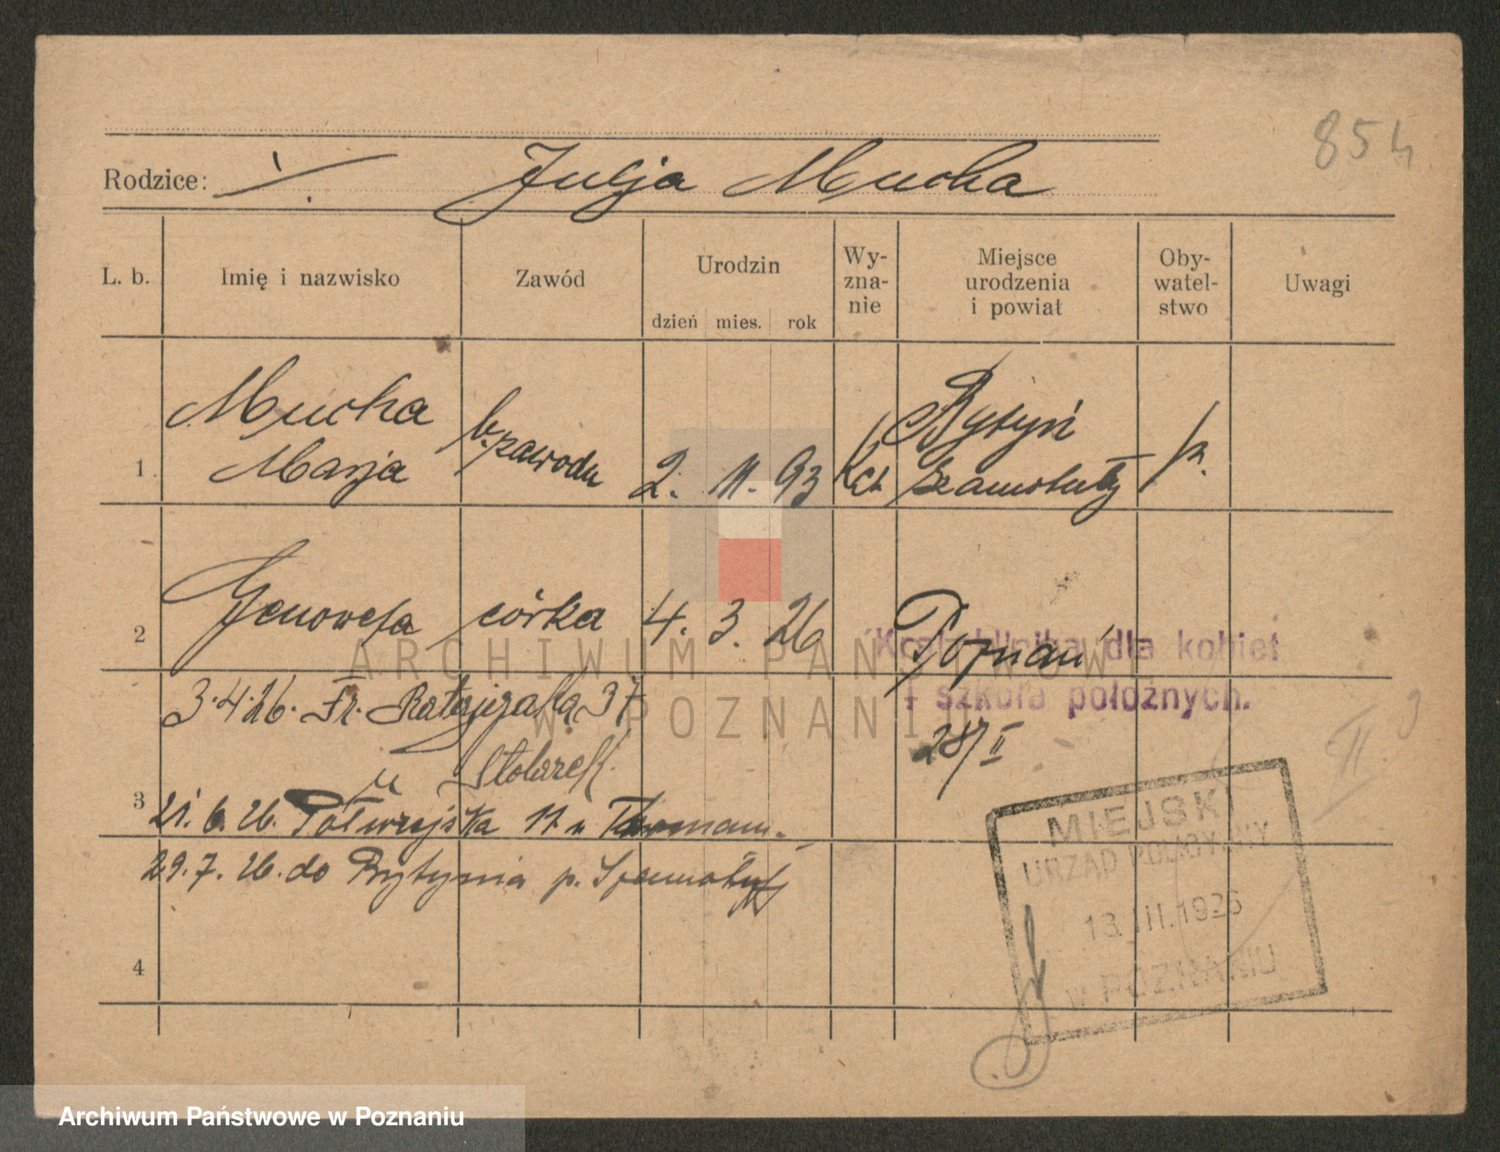 854
Rodzice: Julja Mucha
L. b. Imię i nazwisko Zawód Urodzin dzień mies. rok Wy-zna-nie Miejsce urodzenia i powiat Oby-watel-stwo Uwagi
Mucha
1. Marja b. zawodu 2. 11. 93 kat Rytyń Szamotuły p.
2 Genowefa córka 4. 3. 26 Poznań
klinika dla kobiet
i szkoła położnych.
3.4.26. Fr. Ratajczaka 37
u Stolarek
28/II
3
21.6.26. Półwiejska 11 u
29.7.26. do Rytynia p. Szamotuły
4
MIEJSKI
URZĄD POLICYJNY
13.III.1926
w POZNANIU
ARCHIWUM PAŃSTWOWE
W POZNANIU
Archiwum Państwowe w Poznaniu